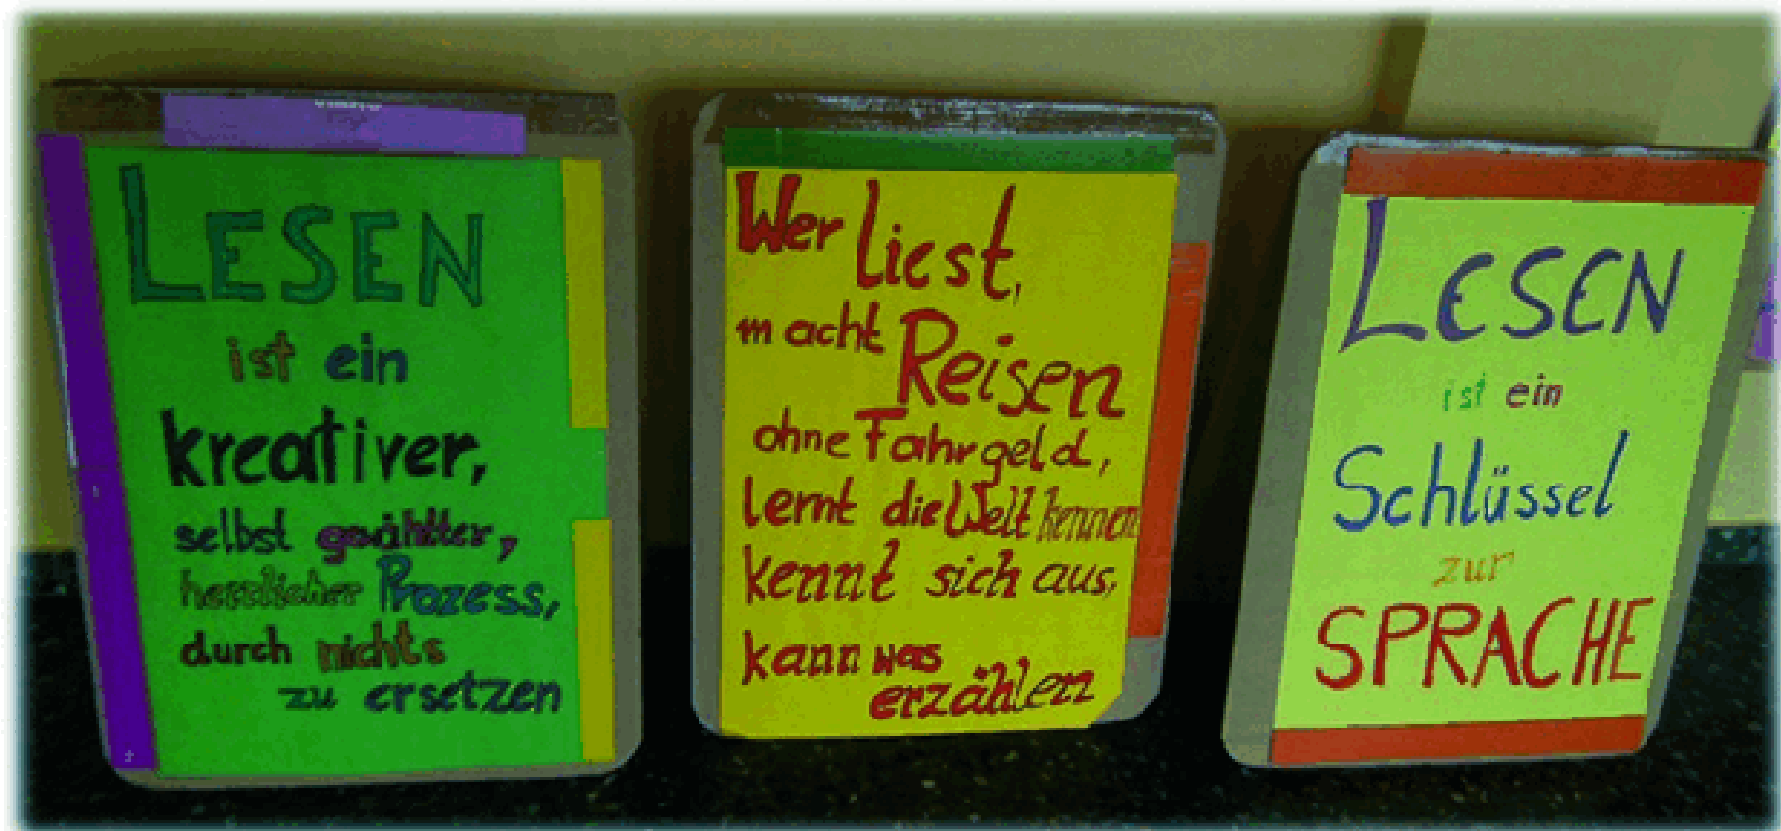 LESEN
ist ein
kreativer,
selbst gewählter,
herrlicher Prozess,
durch nichts
zu ersetzen
Wer liest,
macht Reisen
ohne Fahrgeld,
lernt die Welt kennen
kennt sich aus,
kann was
erzählen
LESEN
ist ein
Schlüssel
zur
SPRACHE